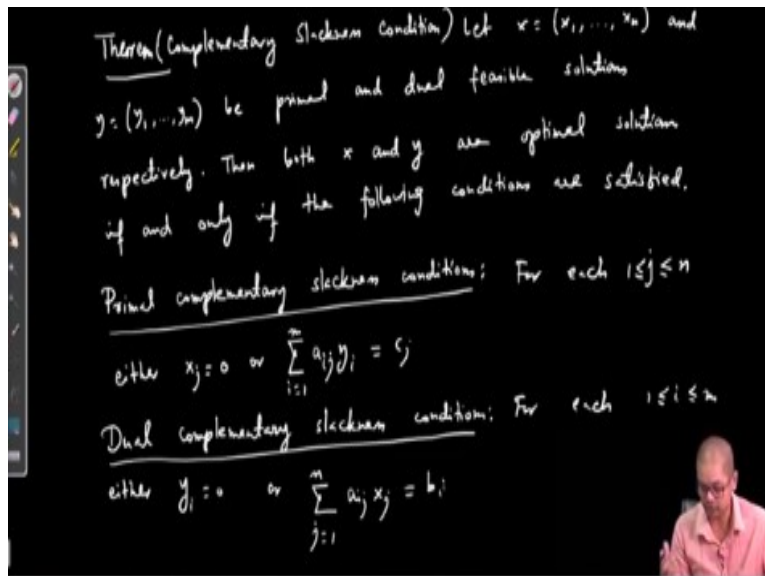 Theorem (Complementary Slackness Condition) Let x = (x₁, ..., xₙ) and
y = (y₁, ..., yₘ) be primal and dual feasible solutions
respectively. Then both x and y are optimal solutions
if and only if the following conditions are satisfied.
Primal complementary slackness conditions: For each 1≤j≤n
either xⱼ=0 or ∑_{i=1}^{m} aᵢⱼ yᵢ = cⱼ
Dual complementary slackness conditions: For each 1≤i≤m
either yᵢ=0 or ∑_{j=1}^{n} aᵢⱼ xⱼ = bᵢ